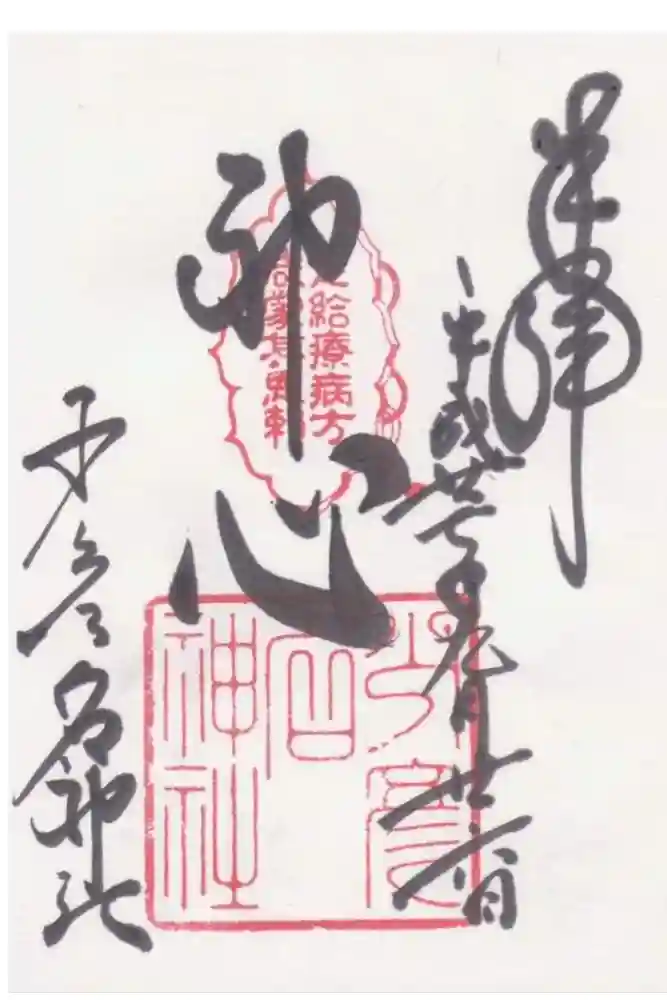 奉拝
平成廿年九月廿日
神心
給療病方
蒙其恩頼
少彦名神社
少彦名神社